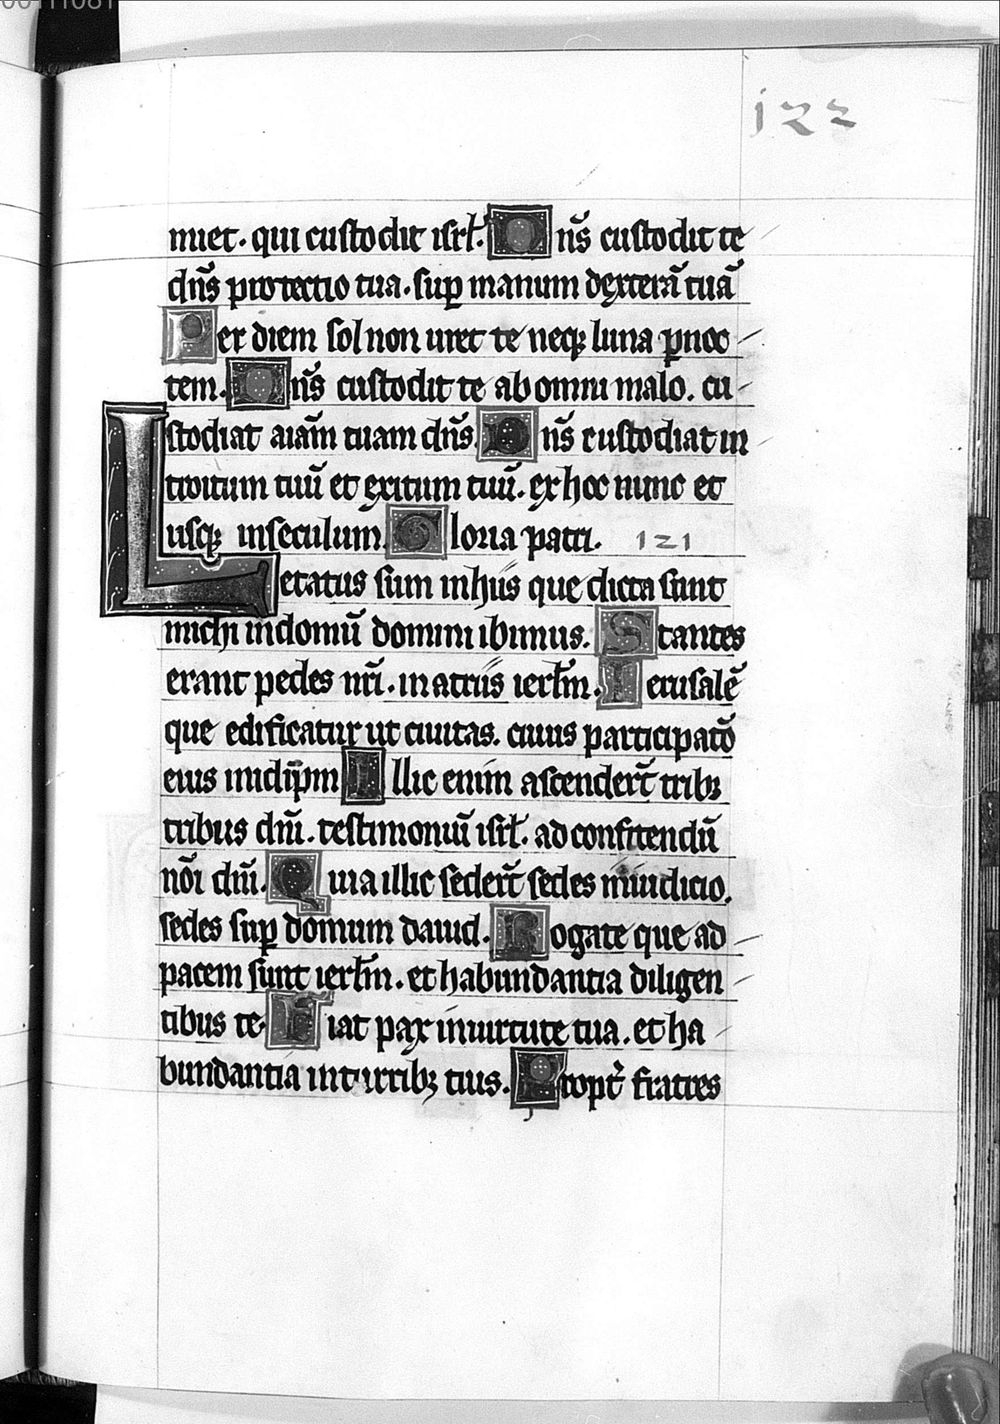 00111081
122
miet. qui custodit isrł. Dn̄s custodit te
dn̄s protectio tua. sup manum dexterā tuā
Per diem sol non uret te neqꝫ luna p noc
tem. Dn̄s custodit te ab omni malo. cu
stodiat aīam tuam dn̄s. Dn̄s custodiat in
troitum tuū et exitum tuū. ex hoc nunc et
usqꝫ inseculum. Gloria patri. 121
Letatus sum in hiis que dicta sunt
michi indomū domini ibimus. Stantes
erant pedes nr̄i. in atriis ierłm. Ierusalē
que edificatur ut ciuitas. cuius participatō
eius inidip̄m Illic enim ascender̄t tribꝫ
tribus dn̄i. testimoniū isrł. ad confitendū
nōi dn̄i. Quia illic seder̄t sedes iniudicio.
sedes sup domum dauid. Rogate que ad
pacem sunt ierłm. et habundantia diligen
tibus te. Fiat pax inuirtute tua. et ha
bundantia inturribꝫ tuis. Propt̄ fratres